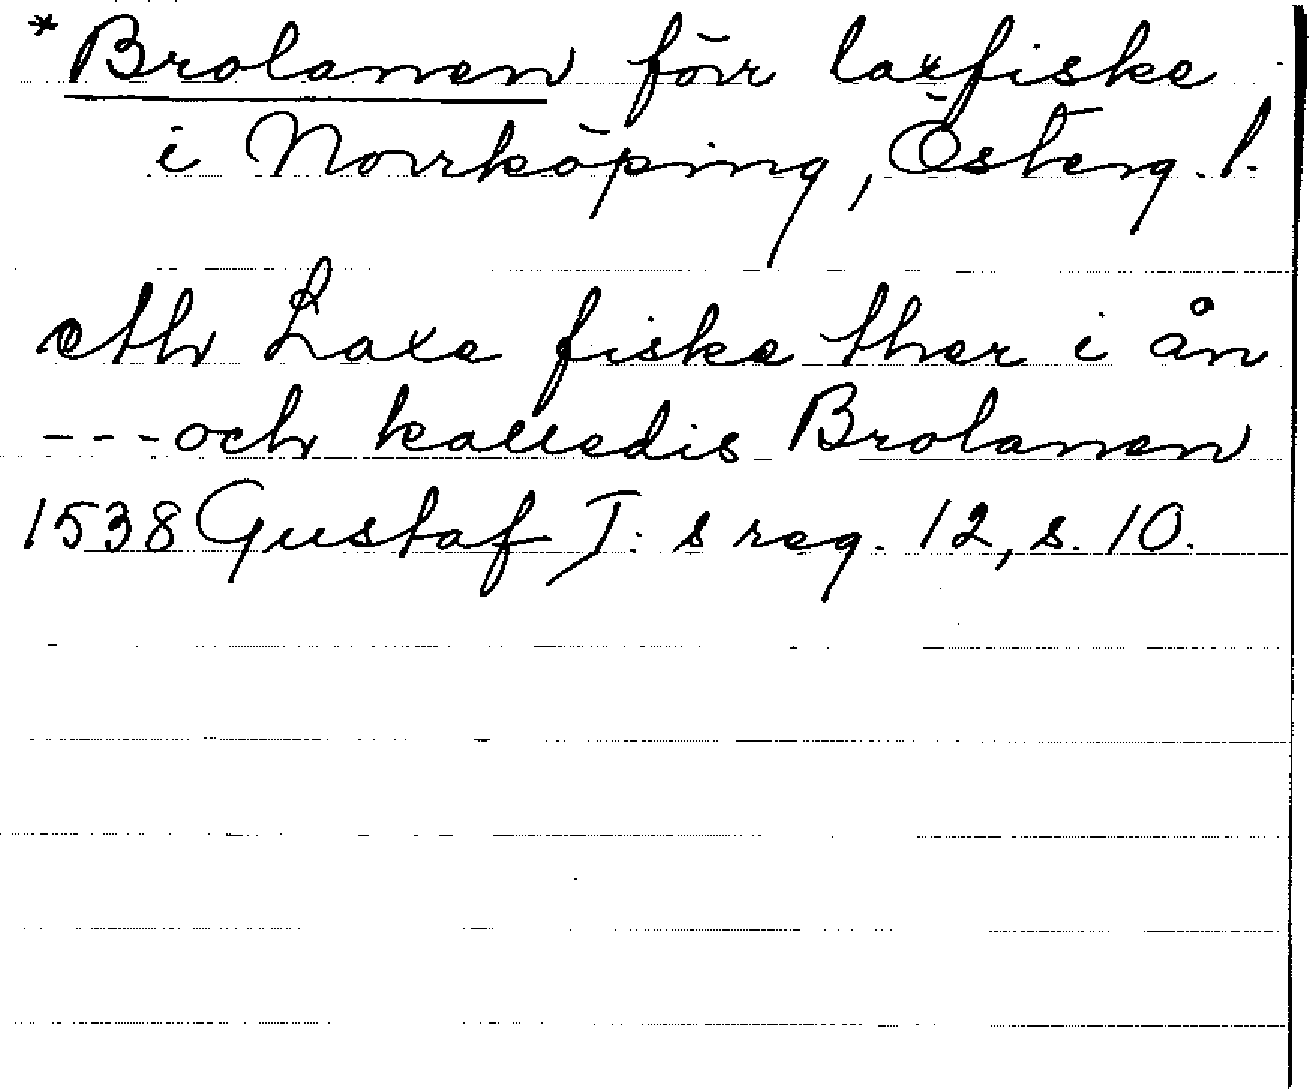 *Brolanen förr laxfiske
i Norrköping, Österg. l.
eth Laxe fiske ther i ån
---och kalledis Brolanen
1538 Gustaf I:s reg. 12, s. 10.